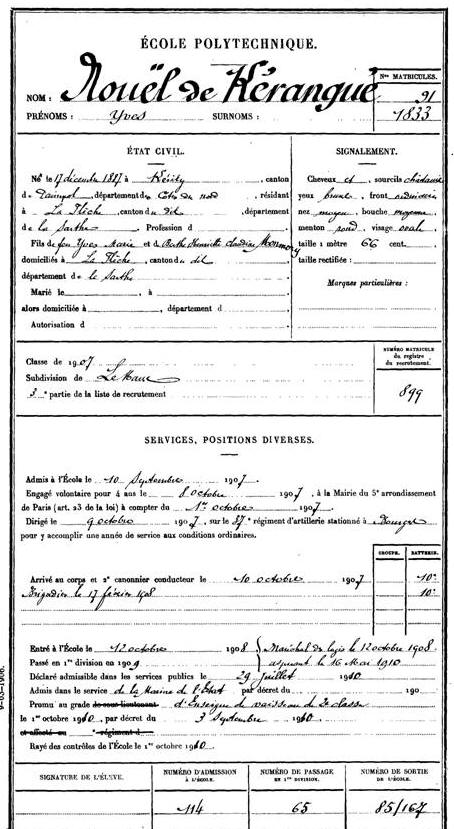 ÉCOLE POLYTECHNIQUE.
NOM : Nouël de Kérangué
Nos MATRICULES.
91
1833
PRÉNOMS : Yves SURNOMS :
ÉTAT CIVIL.
Né le 17 décembre 1887 à Kérity, canton
de Paimpol, département des Côtes du nord, résidant
à La Flèche, canton du dit, département
de la Sarthe. Profession d
Fils de feu Yves Marie et de Berthe Henriette Claudine
domiciliés à La Flèche, canton du dit
département de la Sarthe
Marié le , à ,
alors domiciliée à , département d
Autorisation d
SIGNALEMENT.
Cheveux et sourcils châtains
yeux bruns, front ordinaire
nez moyen, bouche moyenne
menton rond, visage ovale
taille 1 mètre 66 cent.
taille rectifiée :
Marques particulières :
Classe de 1907
Subdivision de Le Mans
3e partie de la liste de recrutement
NUMÉRO MATRICULE
du registre
du recrutement.
899
SERVICES, POSITIONS DIVERSES.
Admis à l'École le 10 Septembre 1907
Engagé volontaire pour 4 ans le 8 octobre 1907, à la Mairie du 5e arrondissement
de Paris (art. 23 de la loi) à compter du 1er octobre 1907
Dirigé le 9 octobre 1907, sur le 37e régiment d'artillerie stationné à Bourges
pour y accomplir une année de service aux conditions ordinaires.
GROUPE. BATTERIE.
Arrivé au corps et 2e canonnier conducteur le 10 octobre 1907 10e
Brigadier le 17 février 1908 10e
Entré à l'École le 12 octobre 1908 Maréchal des logis le 12 octobre 1908
Passé en 1re division en 1909 aspirant le 16 Mai 1910
Déclaré admissible dans les services publics le 29 juillet 1910
Admis dans le service de la Marine de l'Etat par décret du 190
Promu au grade de sous-lieutenant d'Enseigne de vaisseau de 2e classe
le 1er octobre 1910, par décret du 3 Septembre 1910
et affecté au e régiment d
Rayé des contrôles de l'École le 1er octobre 1910
SIGNATURE DE L'ÉLÈVE.
NUMÉRO D'ADMISSION
À L'ÉCOLE.
114
NUMÉRO DE PASSAGE
EN 1re DIVISION.
65
NUMÉRO DE SORTIE
DE L'ÉCOLE.
85/167